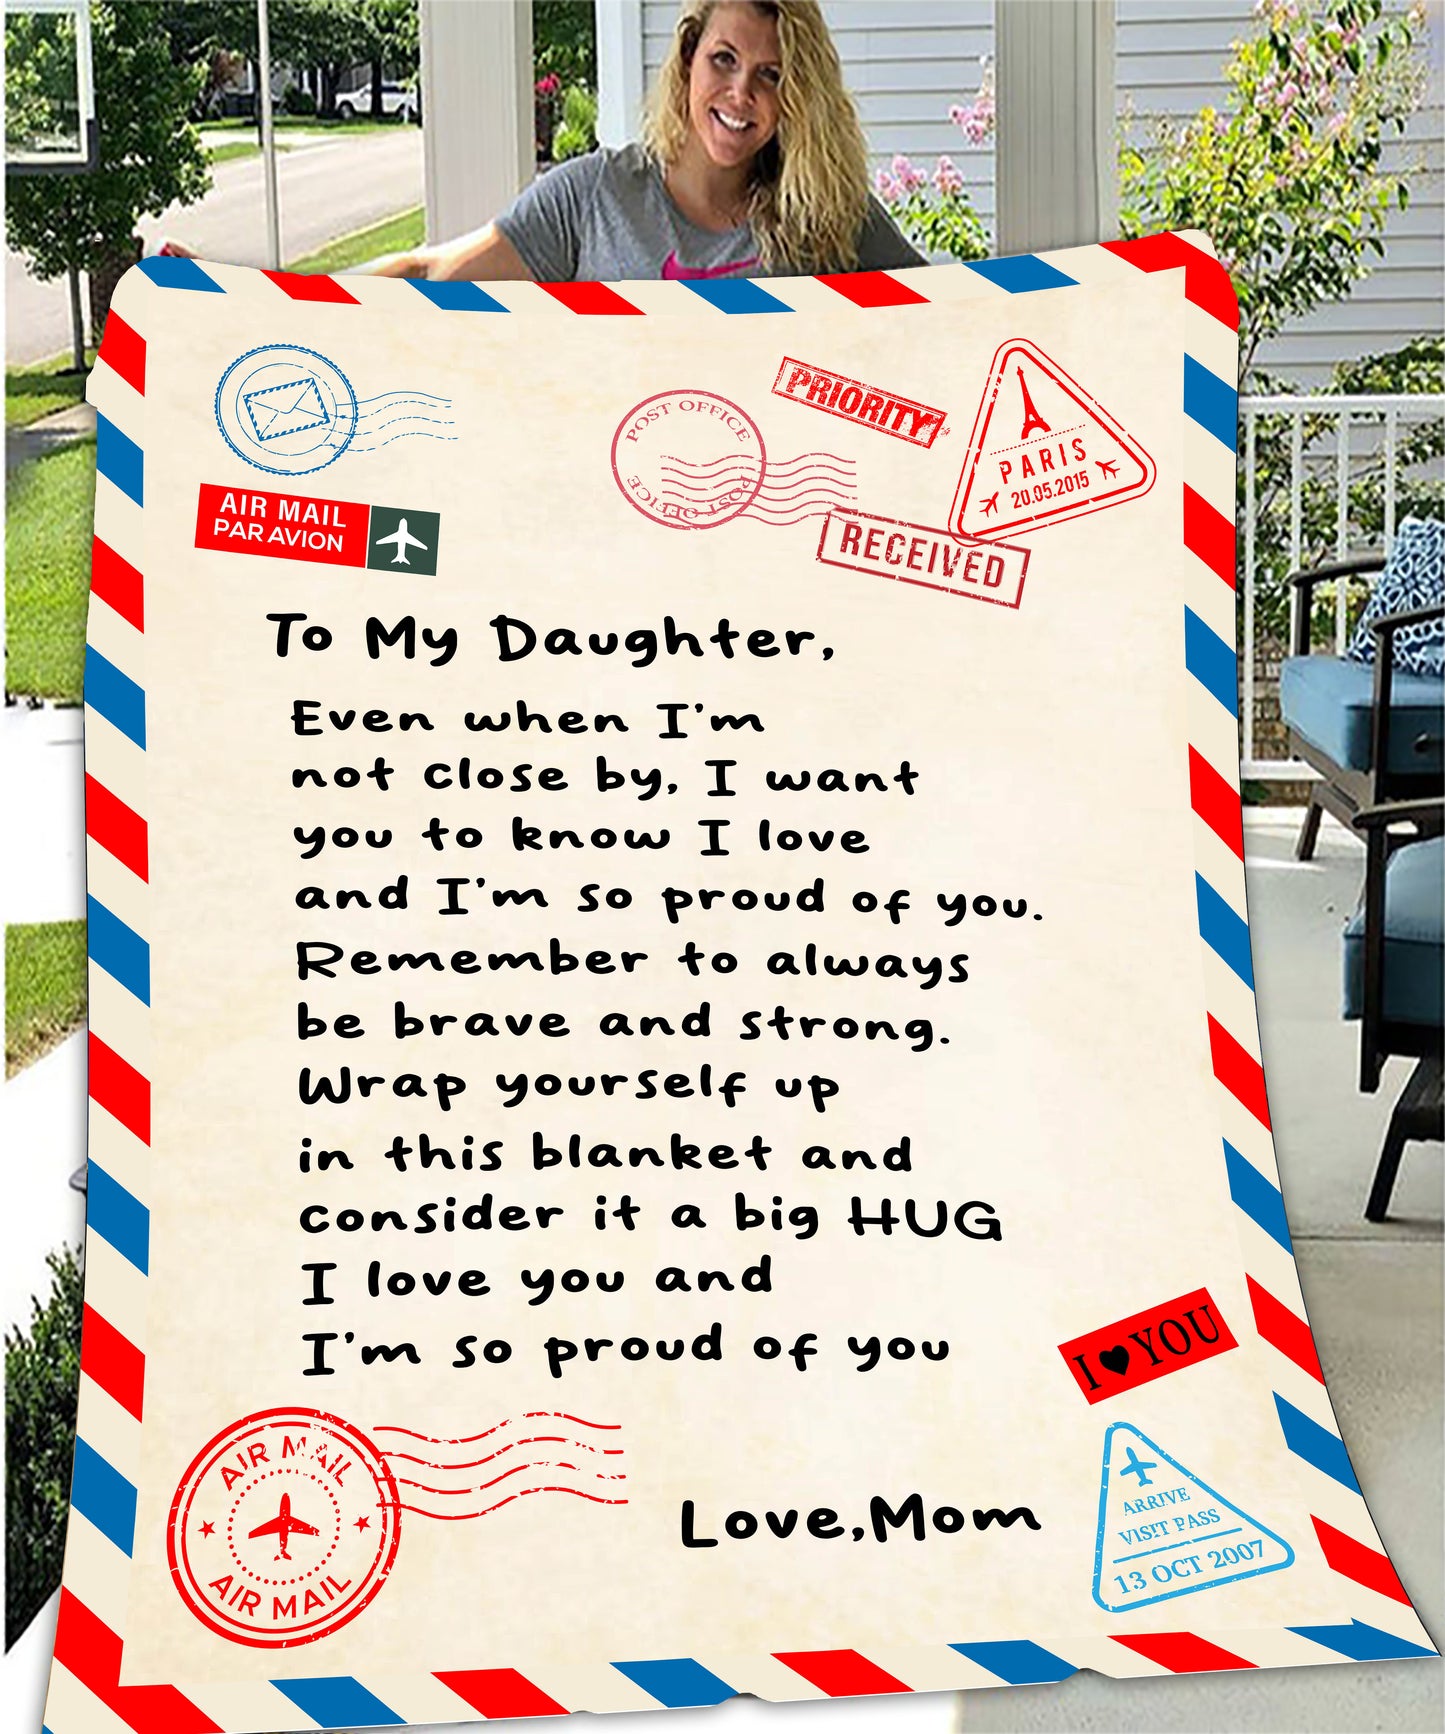 PRIORITY
POST OFFICE
POST OFFICE
PARIS
20.05.2015
AIR MAIL
PAR AVION
RECEIVED
To My Daughter,
Even when I'm
not close by, I want
you to know I love
and I'm so proud of you.
Remember to always
be brave and strong.
Wrap yourself up
in this blanket and
consider it a big HUG
I love you and
I'm so proud of you
I ♥ YOU
AIR MAIL
AIR MAIL
Love,Mom
ARRIVE
VISIT PASS
13 OCT 2007